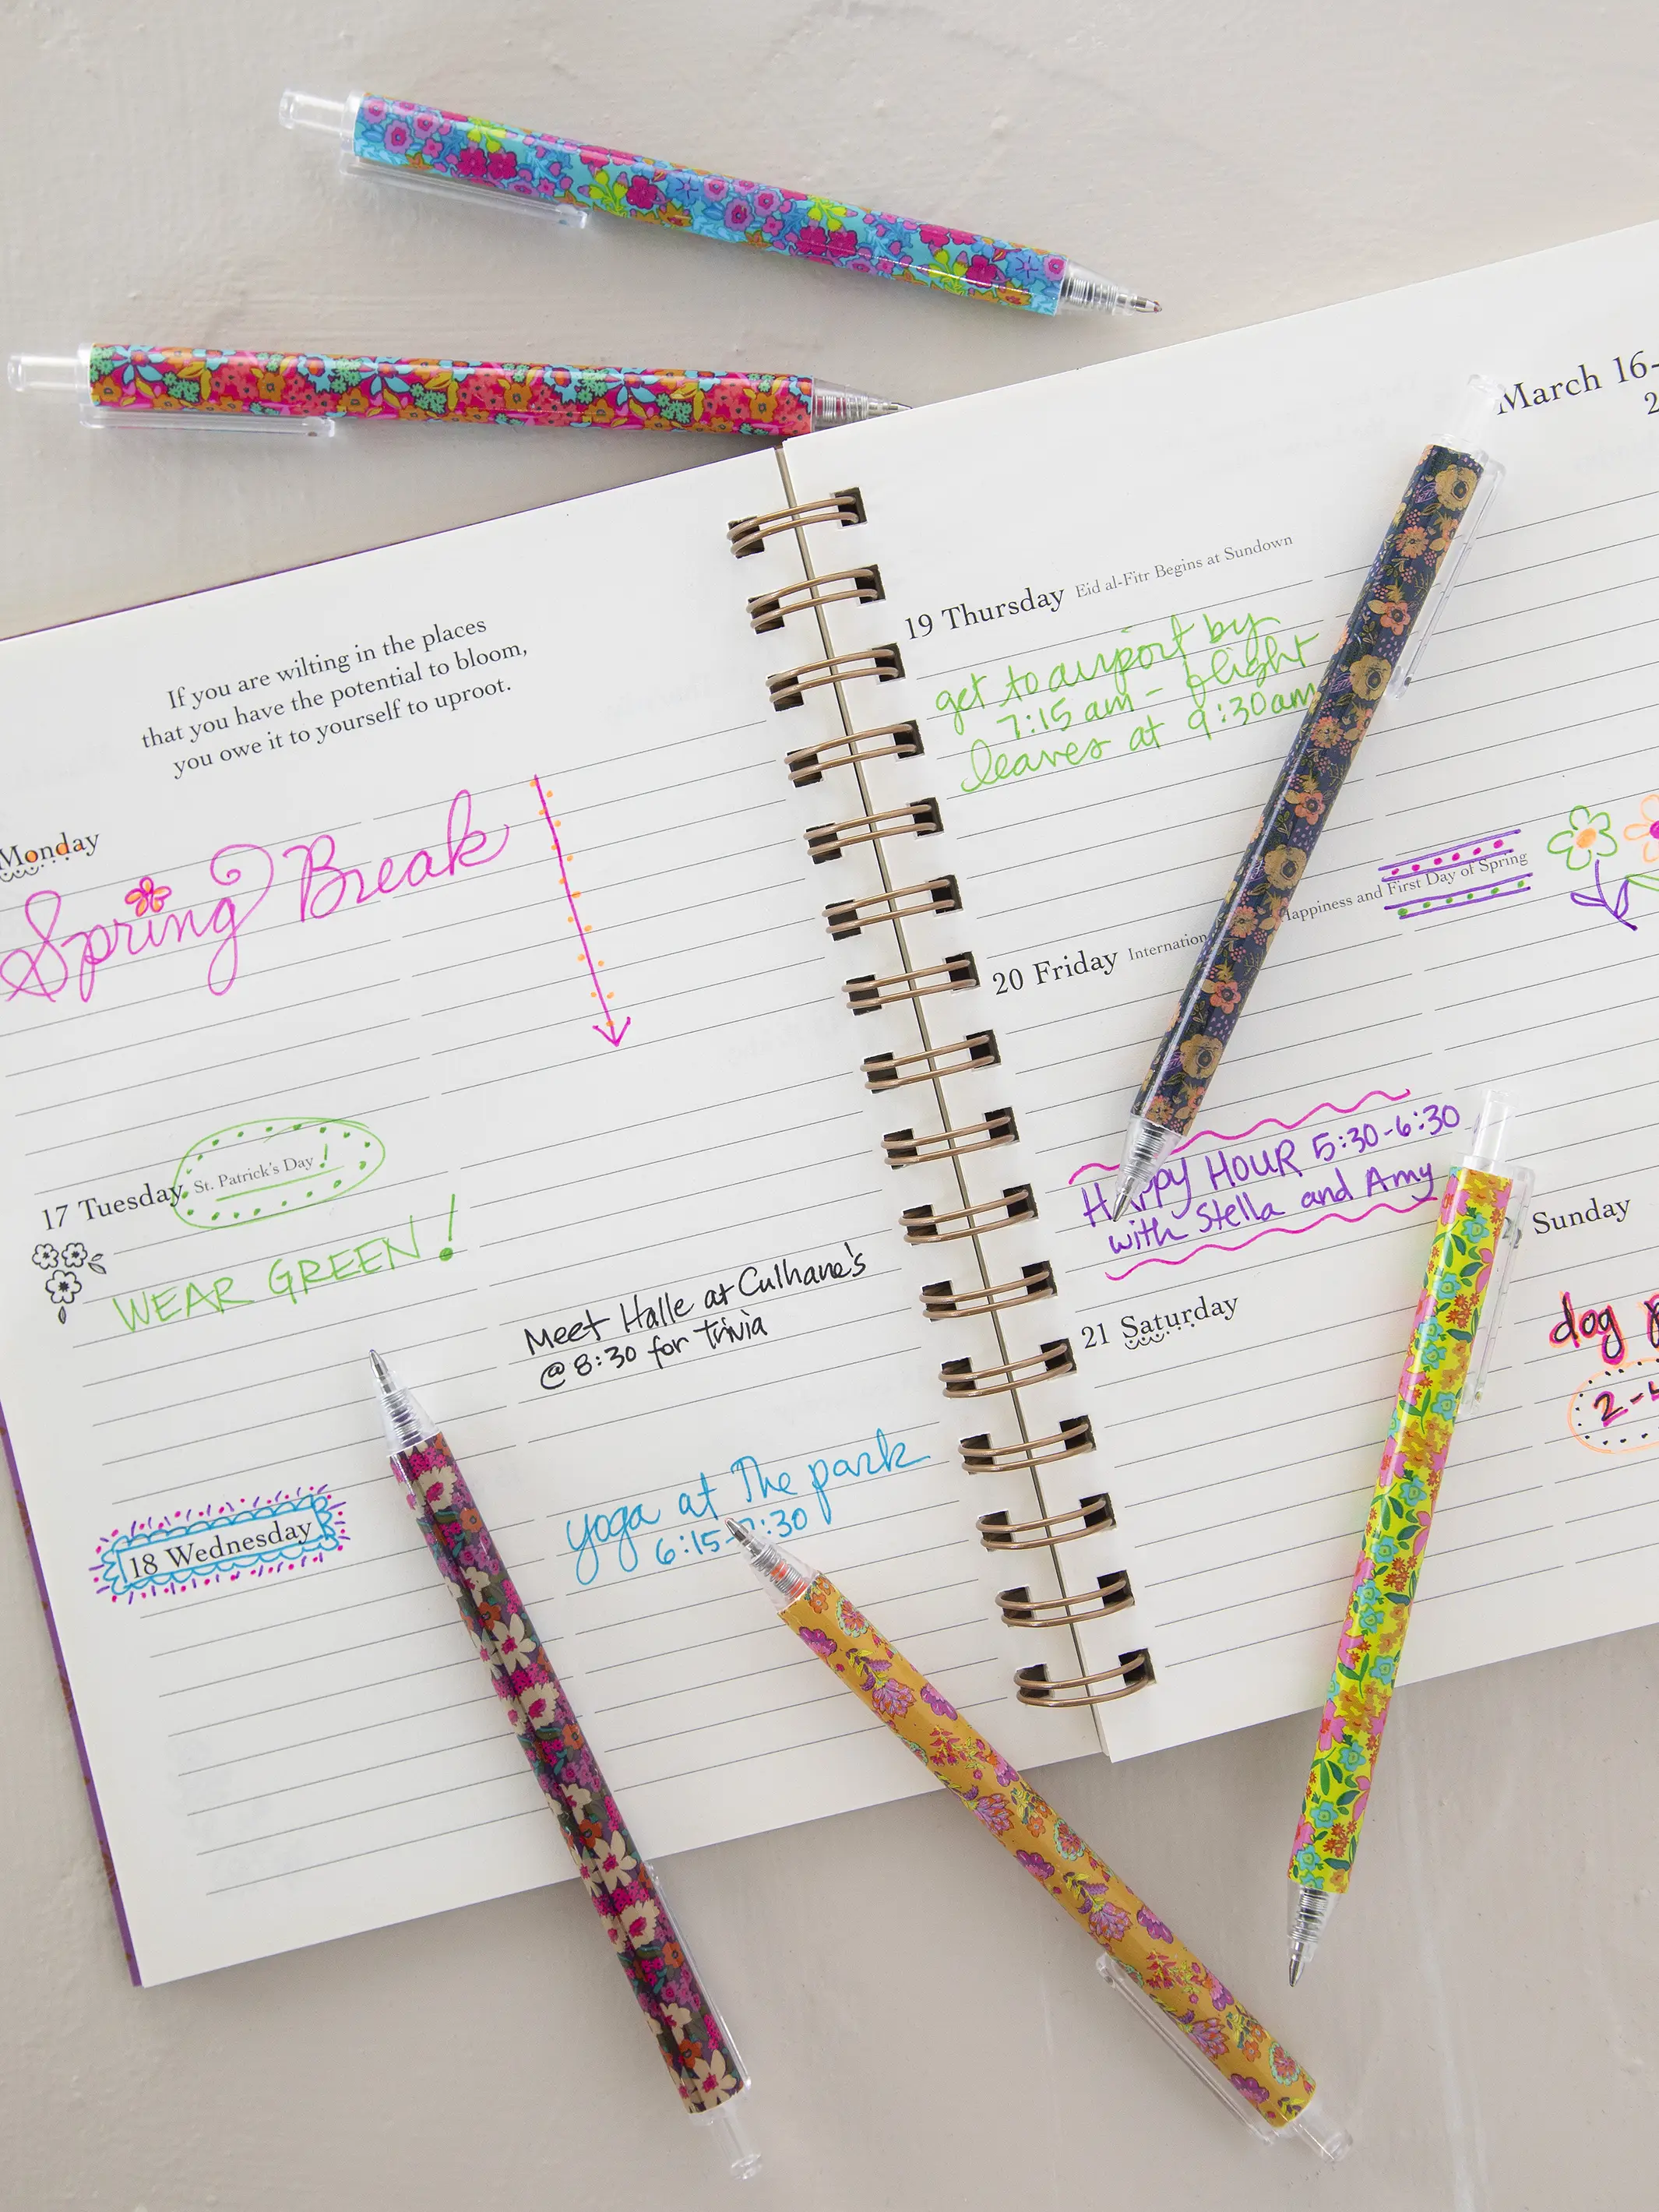 If you are wilting in the places
that you have the potential to bloom,
you owe it to yourself to uproot.
Monday
Spring Break
17 Tuesday St. Patrick's Day!
WEAR GREEN!
Meet Halle at Culhane's
@ 8:30 for trivia
18 Wednesday
yoga at The park
6:15-7:30
March 16-
2
19 Thursday Eid al-Fitr Begins at Sundown
get to airport by
7:15 am - flight
leaves at 9:30am
20 Friday Internation Happiness and First Day of Spring
HAPPY HOUR 5:30-6:30
with Stella and Amy
21 Saturday
Sunday
dog p
2-4